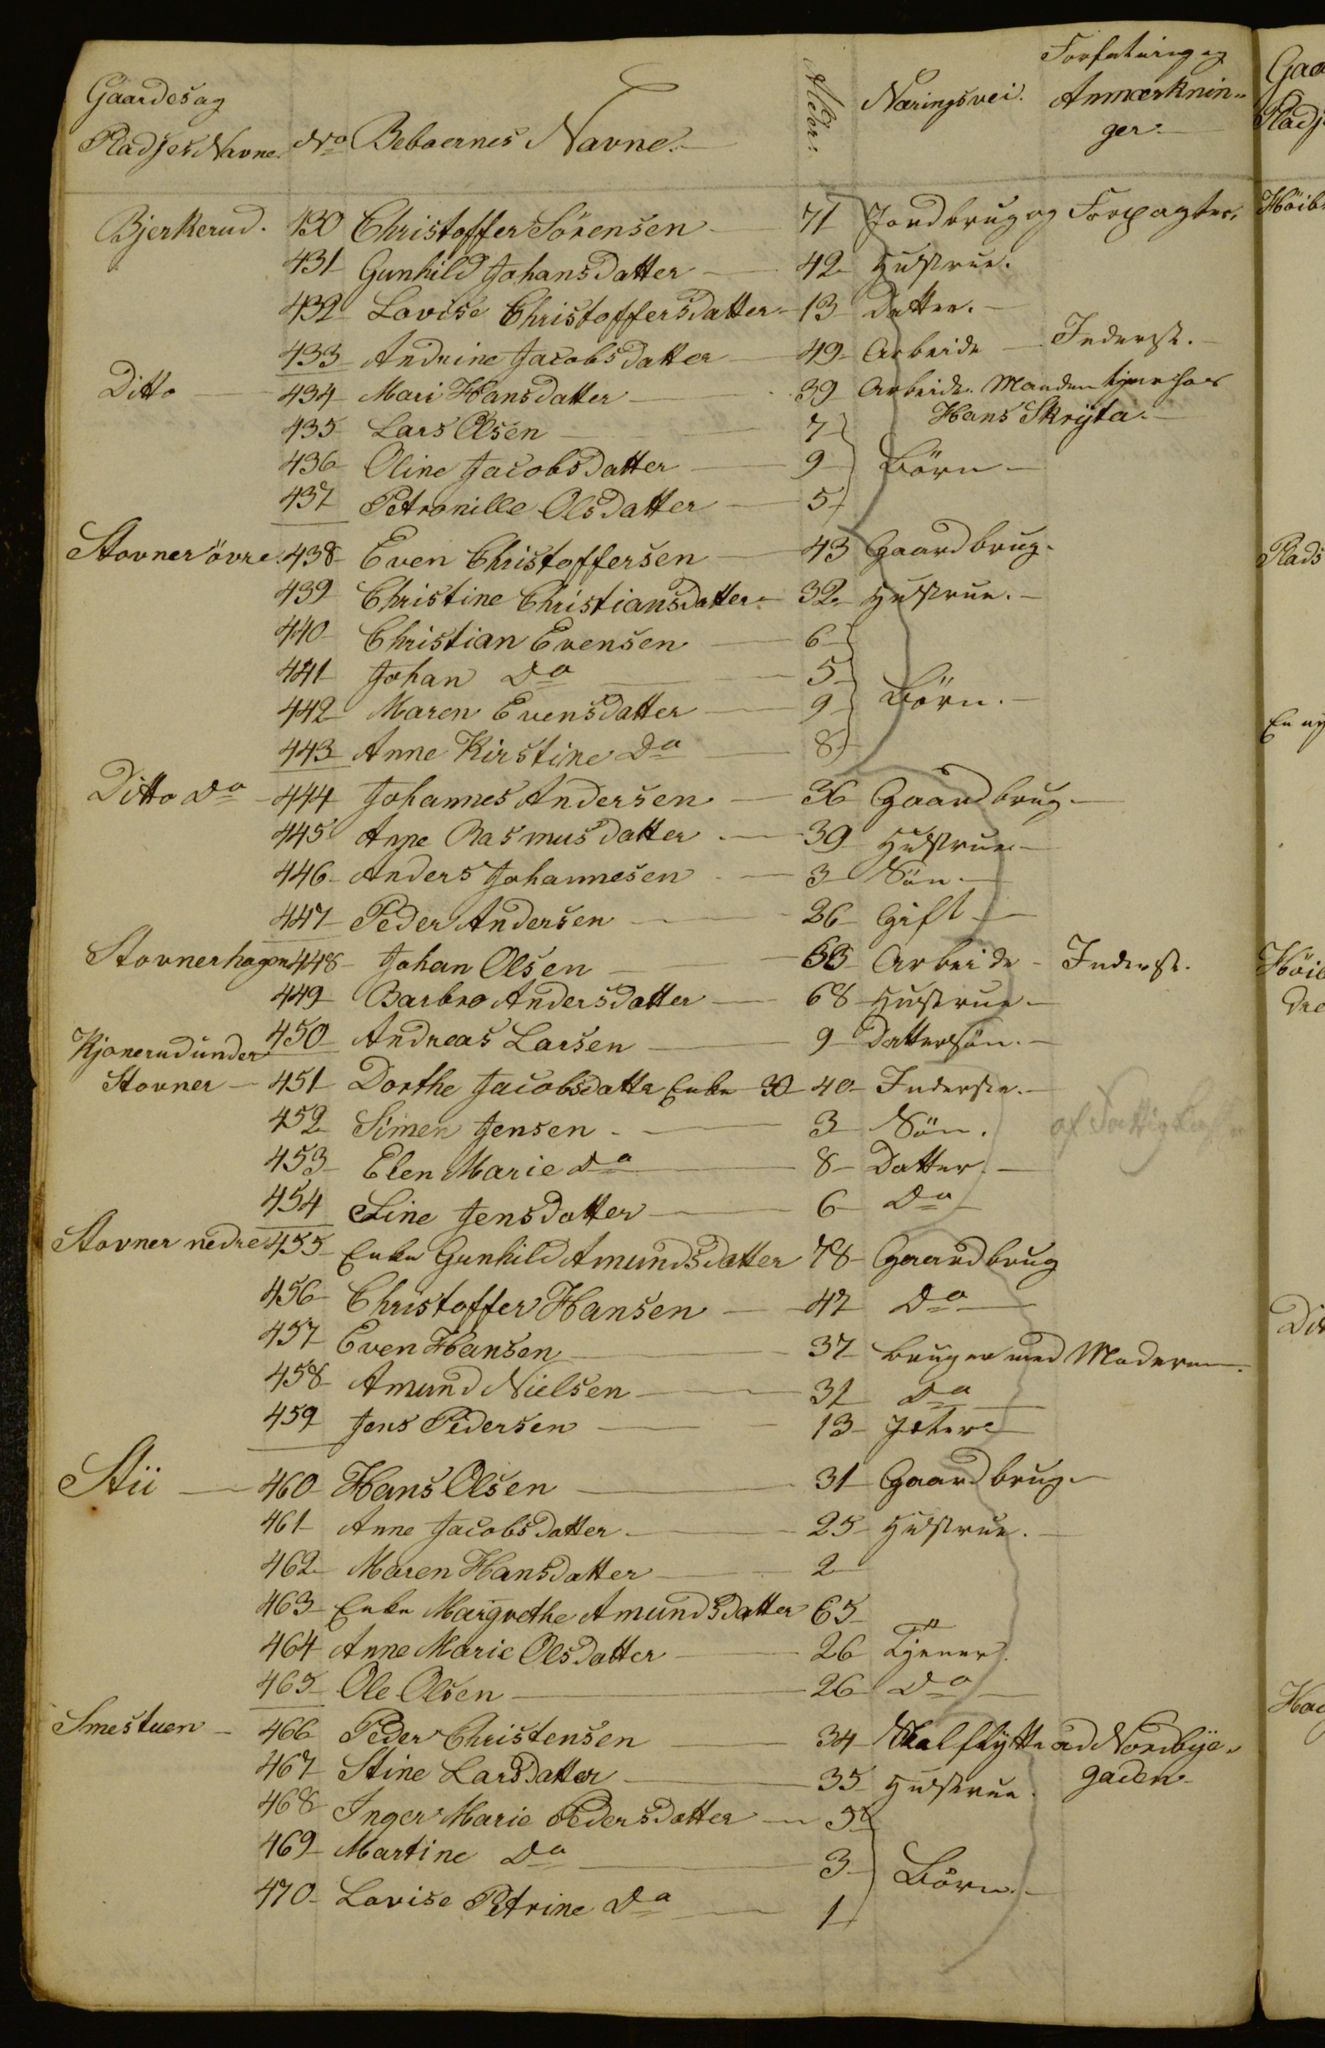 Gaardes og Pladses Navne. No Beboernes Navne. Alder. Næringsvei. Forfatning og Anmærkninger.
Bjerkerud. 430 Christoffer Sörensen 71 Jordbrug og Forpagter.
431 Gunhild Johansdatter 42 Hustrue.
432 Lovise Christoffersdatter 13 Datter.
433 Andrine Jacobsdatter 49 Arbeide Inderst.
Ditto 434 Mari Hansdatter 39 Arbeide. Manden tjener hos
Hans Skrýta.
435 Lars Olsen 7
436 Oline Jacobsdatter 9 Börn
437 Petronille Olsdatter 5
Stovner övre. 438 Even Christoffersen 43 Gaardbrug.
439 Christine Christiansdatter 32 Hustrue.
440 Christian Evensen 6
441 Johan Do 5
442 Maren Evensdatter 9 Börn.
443 Anne Kirstine Do 8
Ditto Do 444 Johannes Andersen 36 Gaardbrug
445 Anne Rasmusdatter 39 Hustrue
446 Anders Johannesen 3 Sön
447 Peder Andersen 26 Gift
Stovnerhagen 448 Johan Olsen Arbeide Inderst.
449 Barbro Andersdatter 68 Hustrue
450 Andreas Larsen 9 Dattersön.
Kjonerud under
Stovner 451 Dorthe Jacobsdattr Enke 30 40 Inderste.
452 Simen Jensen 3 Sön. af Fattigkassen
453 Elen Marie Do 8 Datter
454 Line Jensdatter 6 Do
Stovner nedre 455 Enke Gunhild Amundsdatter 78 Gaardbrug
456 Christoffer Hansen 47 Do
457 Even Hansen 37 bruger med Moderen
458 Amund Nielsen 31 Do
459 Jens Pedersen 13 Jæter
Stii 460 Hans Olsen 31 Gaardbrug
461 Anne Jacobsdatter 25 Hustrue.
462 Maren Hansdatter 2
463 Enke Margrethe Amundsdatter 65
464 Anne Marie Olsdatter 26 Tjener
465 Ole Olsen 26 Do
Smestuen 466 Peder Christensen 34 Skal flytte ad Nordbýe-
gaden
467 Stine Larsdatter 35 Hustrue.
468 Inger Marie Pedersdatter 5
469 Martine Do 3 Börn.
470 Lovise Petrine Do 1
Gaa
Pladj
Höib
Plads
En ny
Höib
Dit
Hag